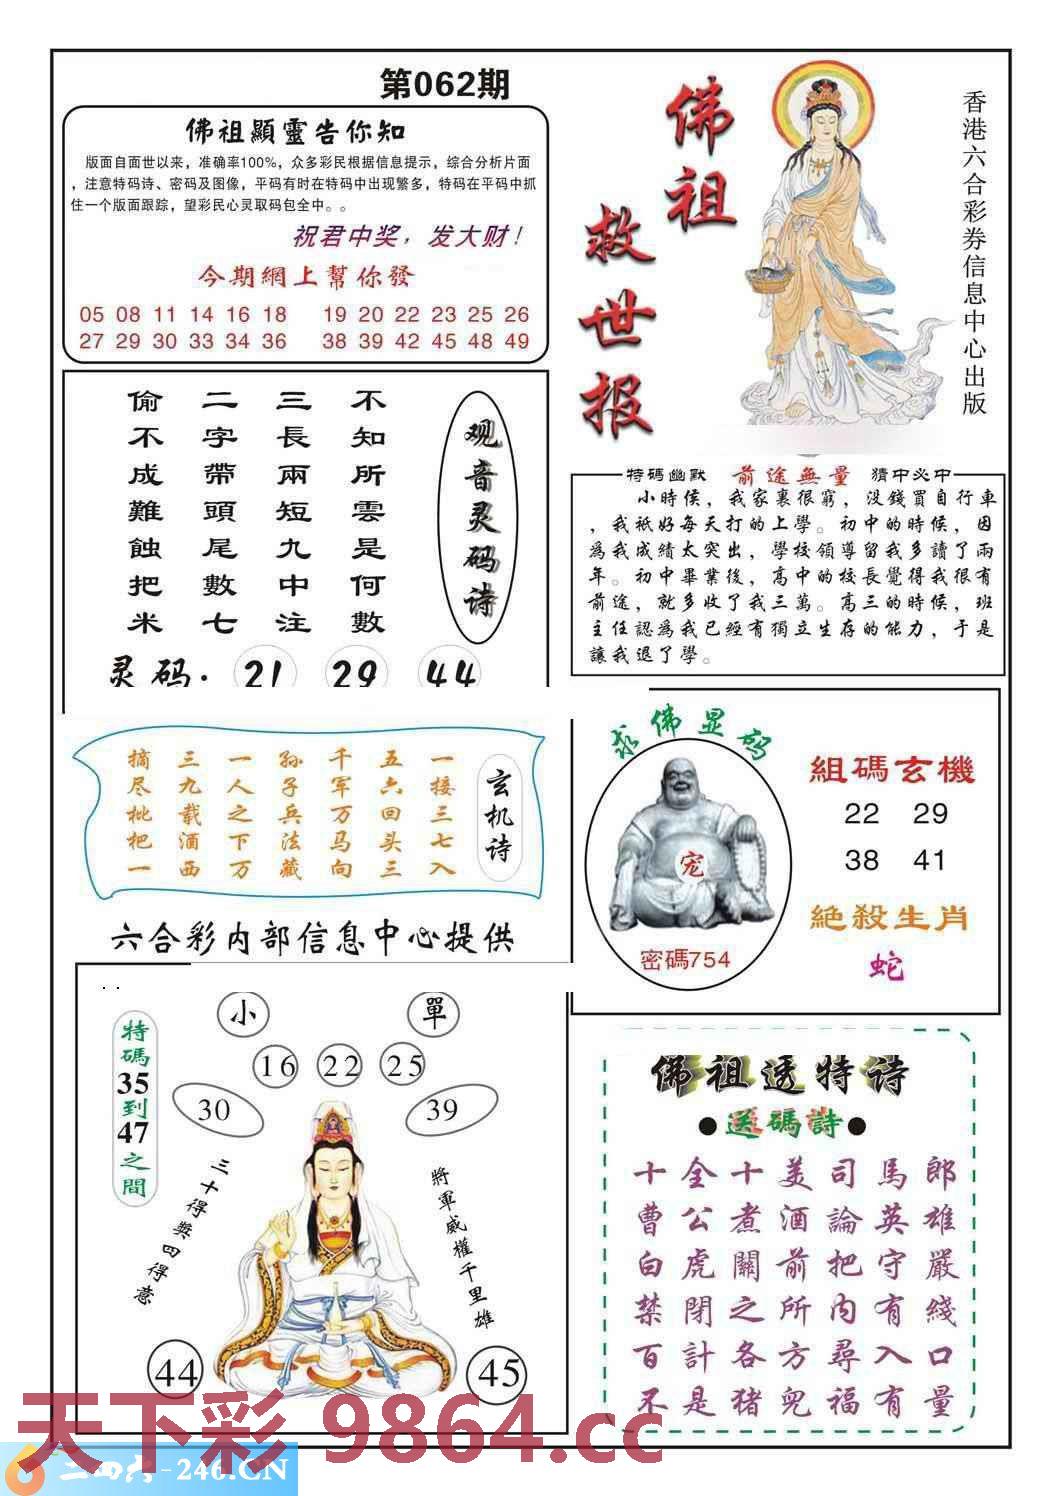 第062期
佛祖顯靈告你知
版面自面世以来，准确率100%，众多彩民根据信息提示，综合分析片面
，注意特码诗、密码及图像，平码有时在特码中出现繁多，特码在平码中抓
住一个版面跟踪，望彩民心灵取码包全中。。
祝君中奖，发大财！
今期網上幫你發
05 08 11 14 16 18 19 20 22 23 25 26
27 29 30 33 34 36 38 39 42 45 48 49
佛祖
救世报
香港六合彩券信息中心出版
观音灵码诗
不知所雲是何數
三長兩短九中注
二字帶頭尾數七
偷不成難蝕把米
灵码. 21 29 44
特碼幽默 前途無量 猜中必中
小時侯，我家裏很窮，没錢買自行車
，我衹好每天打的上學。初中的時候，因
爲我成績太突出，學校領導留我多讀了兩
年。初中畢業後，高中的校長覺得我很有
前途，就多收了我三萬。高三的時候，班
主任認爲我已經有獨立生存的能力，于是
讓我退了學。
玄机诗
一接三七入
五六回头三
千军万马向
孙子兵法藏
一人之下万
三九载酒西
摘尽枇杷一
求佛显码
宠
密碼754
組碼玄機
22 29
38 41
絶殺生肖
蛇
六合彩内部信息中心提供
特碼35到47之間
小 單
16 22 25
30 39
三十得獎四得意
將軍威權千里雄
44 45
佛祖透特诗
●送碼詩●
十全十美司馬郎
曹公煮酒論英雄
白虎關前把守嚴
禁閉之所内有綫
百計各方尋入口
不是猪兜福有量
天下彩 9864.cc
二四六-246.CN